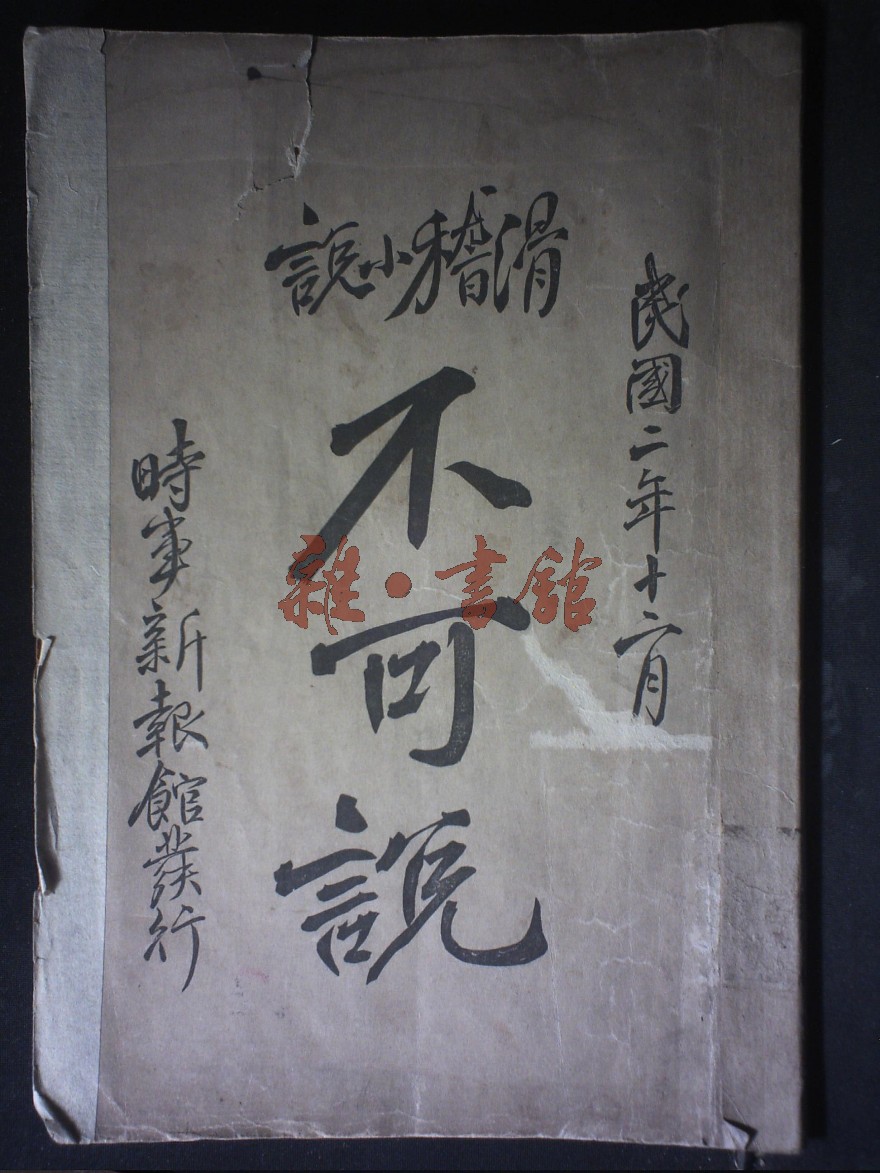 民國二年十二月
滑稽小說
不可說
時事新報館發行
雜·書館